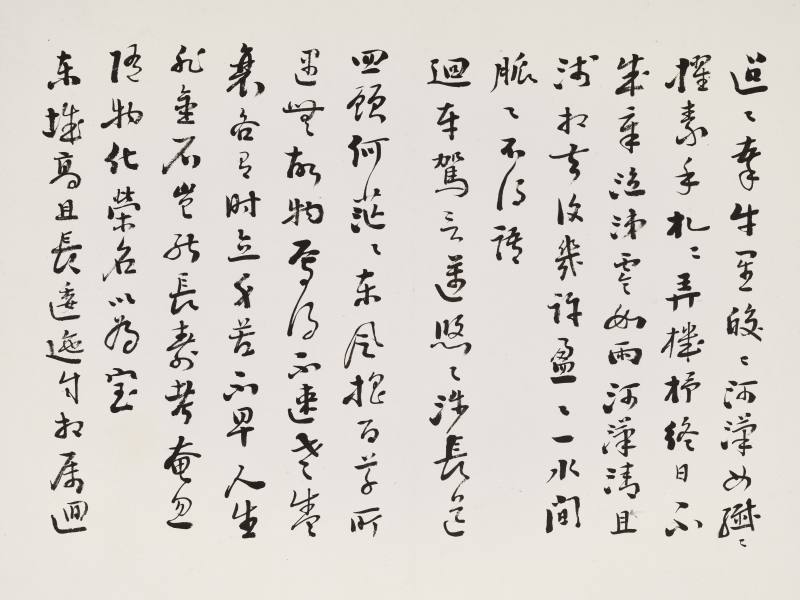 迢〻牽牛星皎〻河漢女纖〻
擢素手札〻弄機杼終日不
成章泣涕零如雨河漢清且
淺相去復幾許盈〻一水間
脈〻不得語
迴車駕言邁悠〻涉長道
四顧何茫〻東風搖百草所
遇無故物焉得不速老盛
衰各有時立身苦不早人生
非金石豈能長壽考奄忽
隨物化榮名以為寶
東城高且長逶迤自相屬迴